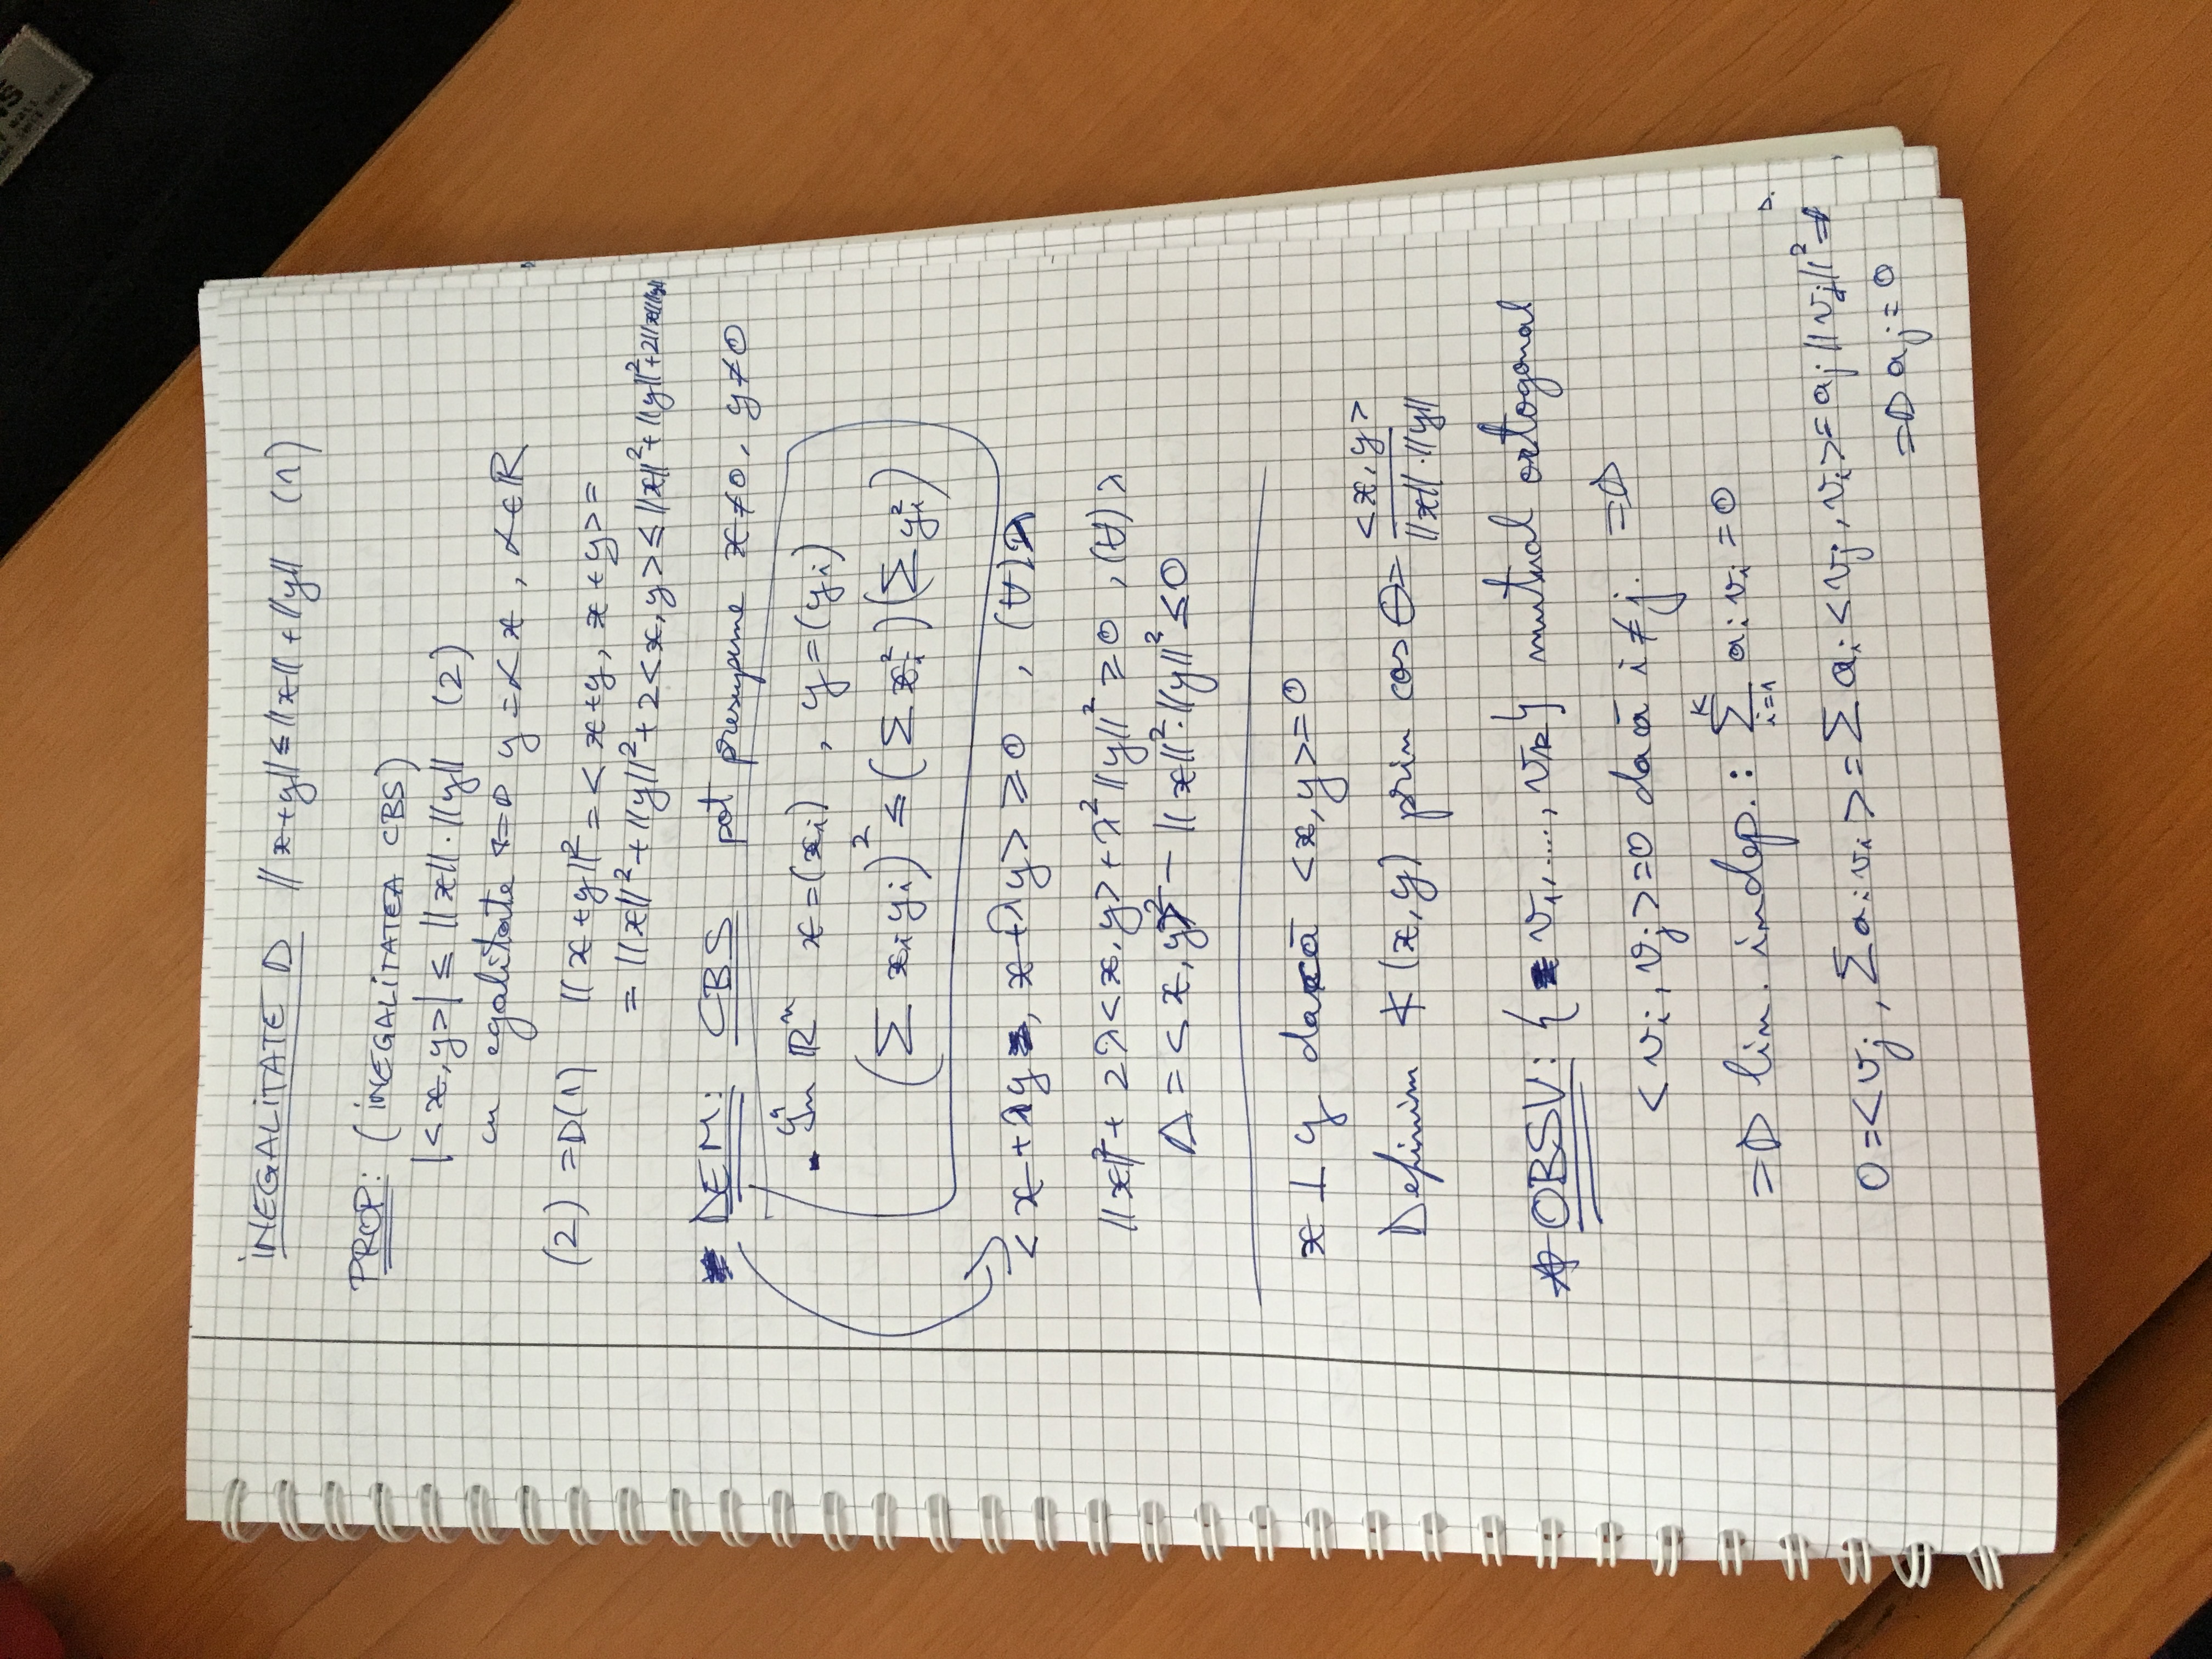 INEGALITATE Δ ||x+y|| ≤ ||x|| + ||y|| (1)
PROP: (INEGALITATEA CBS)
|<x,y>| ≤ ||x||·||y|| (2)
cu egalitate <=> y = αx, α∈R
(2) => (1) ||x+y||² = <x+y, x+y> =
= ||x||² + ||y||² + 2<x,y> ≤ ||x||² + ||y||² + 2||x||||y||
DEM: CBS pot presupune x≠0, y≠0
în ℝⁿ x=(xᵢ), y=(yᵢ)
(∑ xᵢyᵢ)² ≤ (∑ xᵢ²)(∑ yᵢ²)
<x+λy, x+λy> ≥ 0, (∀)λ
||x||² + 2λ<x,y> + λ²||y||² ≥ 0, (∀)λ
Δ = <x,y>² - ||x||²·||y||² ≤ 0
x ⊥ y dacă <x,y> = 0
Definim ∢(x,y) prin cos θ = <x,y> / ||x||·||y||
OBSV: {v₁, ..., vₖ} mutual ortogonal
<vᵢ, vⱼ> = 0 dacă i≠j. =>
=> lin. indep.: ∑ᵢ₌₁ᵏ aᵢvᵢ = 0
0 = <vⱼ, ∑aᵢvᵢ> = ∑aᵢ<vⱼ,vᵢ> = aⱼ||vⱼ||² =>
=> aⱼ = 0